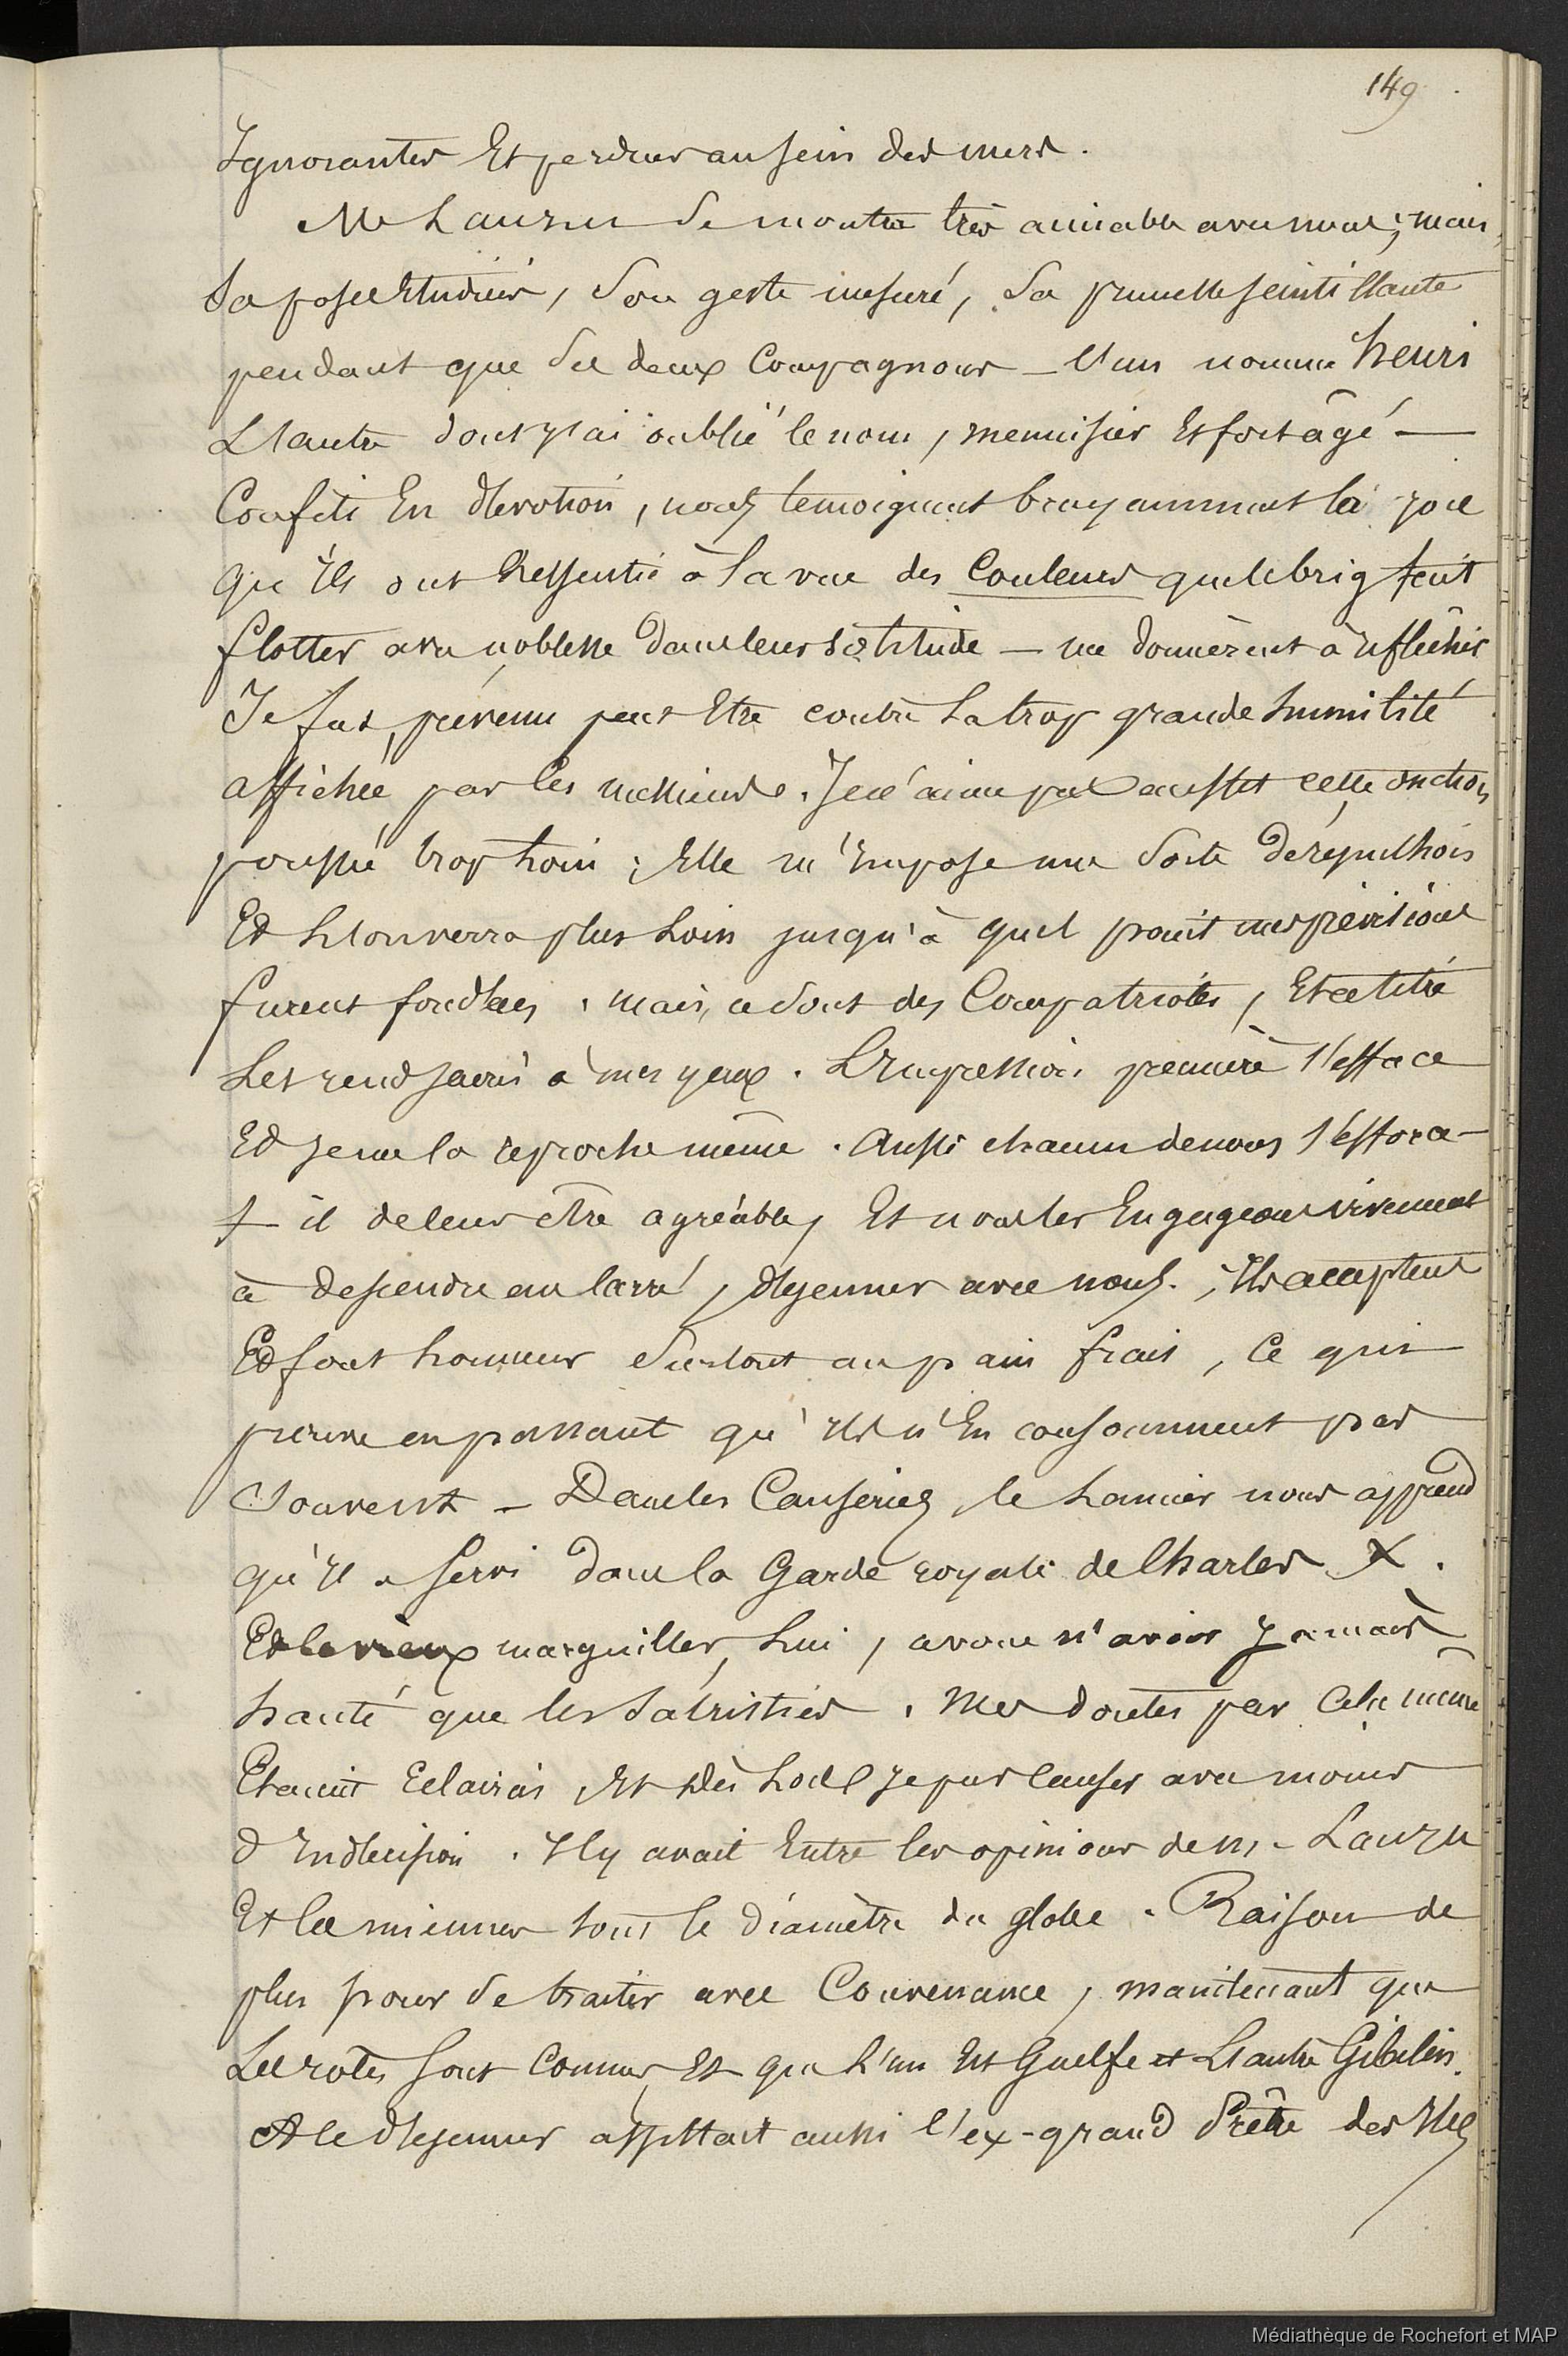 149
Ignorantes Et perdues au sein des mers.
Mr Lauzun se montre très aimable avec nous ; mais,
Sa pose Etudiée, Son geste mesuré, Sa prunelle scintillante
pendant que Ses deux Compagnons - l'un nommé henri
L'autre dont j'ai oublié le nom, menuisier Et fort âgé -
Confits En dévotion, nous temoignent bruyamment la joie
qu'Ils ont Ressentie à la vue des Couleurs que le brig fait
flotter avec noblesse dans leur solitude - me donnèrent à réfléchir
Je fus prévenu peut Etre contre La trop grande humilité
affichée par les messieurs. Je n'aime pas en effet cette onction
poussée trop Loin ; Elle m'Impose une Sorte de répulsion
Et L'on verra plus Loin jusqu'à quel point mes prévisions
furent fondées. mais, ce sont des Compatriotes, Et ce titre
Les rend sacrés à mes yeux. L'Impression première s'efface
Et je me la reproche même. Aussi chacun de nous s'efforce-
t-il de leur être agréable, Et nous les Engageons vivement
à descendre au carré, déjeuner avec nous. ; Ils acceptent
Et font honneur Surtout au pain frais, Ce qui
prouve en passant qu'Ils n'En consomment pas
Souvent - Dans les Causeries, le Lancier nous apprend
qu'Il a servi dans la Garde royale de Charles X.
Et le vieux marguiller, Lui, avoue n'avoir Jamais
hanté que les Sacristies. Mes doutes par Cela même
Etaient Eclaircis, Et dès Lors Je pus Causer avec moins
d'Indécision. Il y avait Entre les opinions de M. Lauzun
Et les miennes tout le diamètre du globe. Raison de
plus pour Se traiter avec Convenance, maintenant que
Les rôles sont Connus, Et que L'un Est Guelfe et L'autre Gibelin.
A ce déjeuner assistait aussi l'ex-grand Prêtre des Iles
Médiathèque de Rochefort et MAP